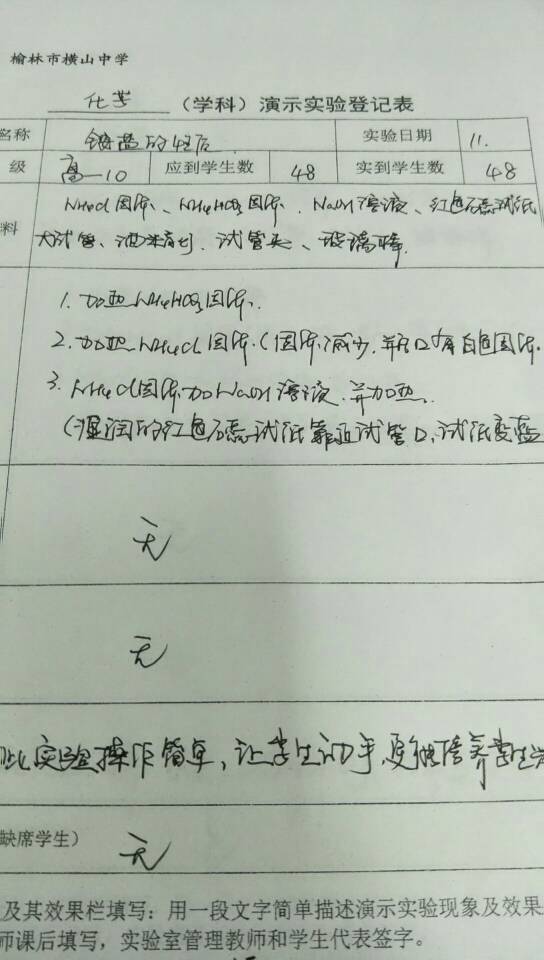 榆林市横山中学
化学（学科）演示实验登记表
名称 铵盐的性质 实验日期 11.
级 高一10 应到学生数 48 实到学生数 48
NH4Cl固体、NH4HCO3固体、NaOH溶液、红色石蕊试纸
料 大试管、酒精灯、试管夹、玻璃棒
1. 加热NH4HCO3固体.
2. 加热NH4Cl固体.(固体减少,并管口有白色固体.
3. NH4Cl固体加NaOH溶液.并加热.
(湿润的红色石蕊试纸靠近试管口,试纸变蓝
无
无
此实验操作简单,让学生动手,更能培养学生
缺席学生） 无
及其效果栏填写：用一段文字简单描述演示实验现象及效果
师课后填写，实验室管理教师和学生代表签字。